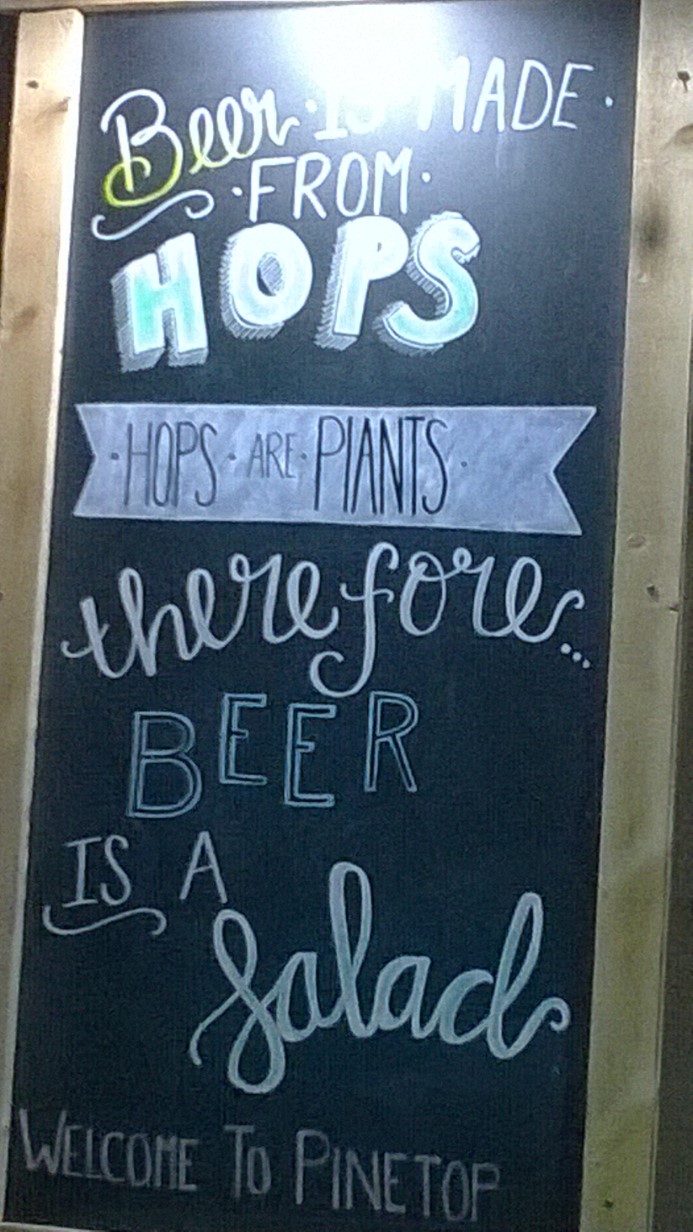 Beer · IS MADE ·
· FROM ·
HOPS
· HOPS · ARE · PLANTS ·
therefore...
BEER
IS A
Salad
WELCOME TO PINETOP